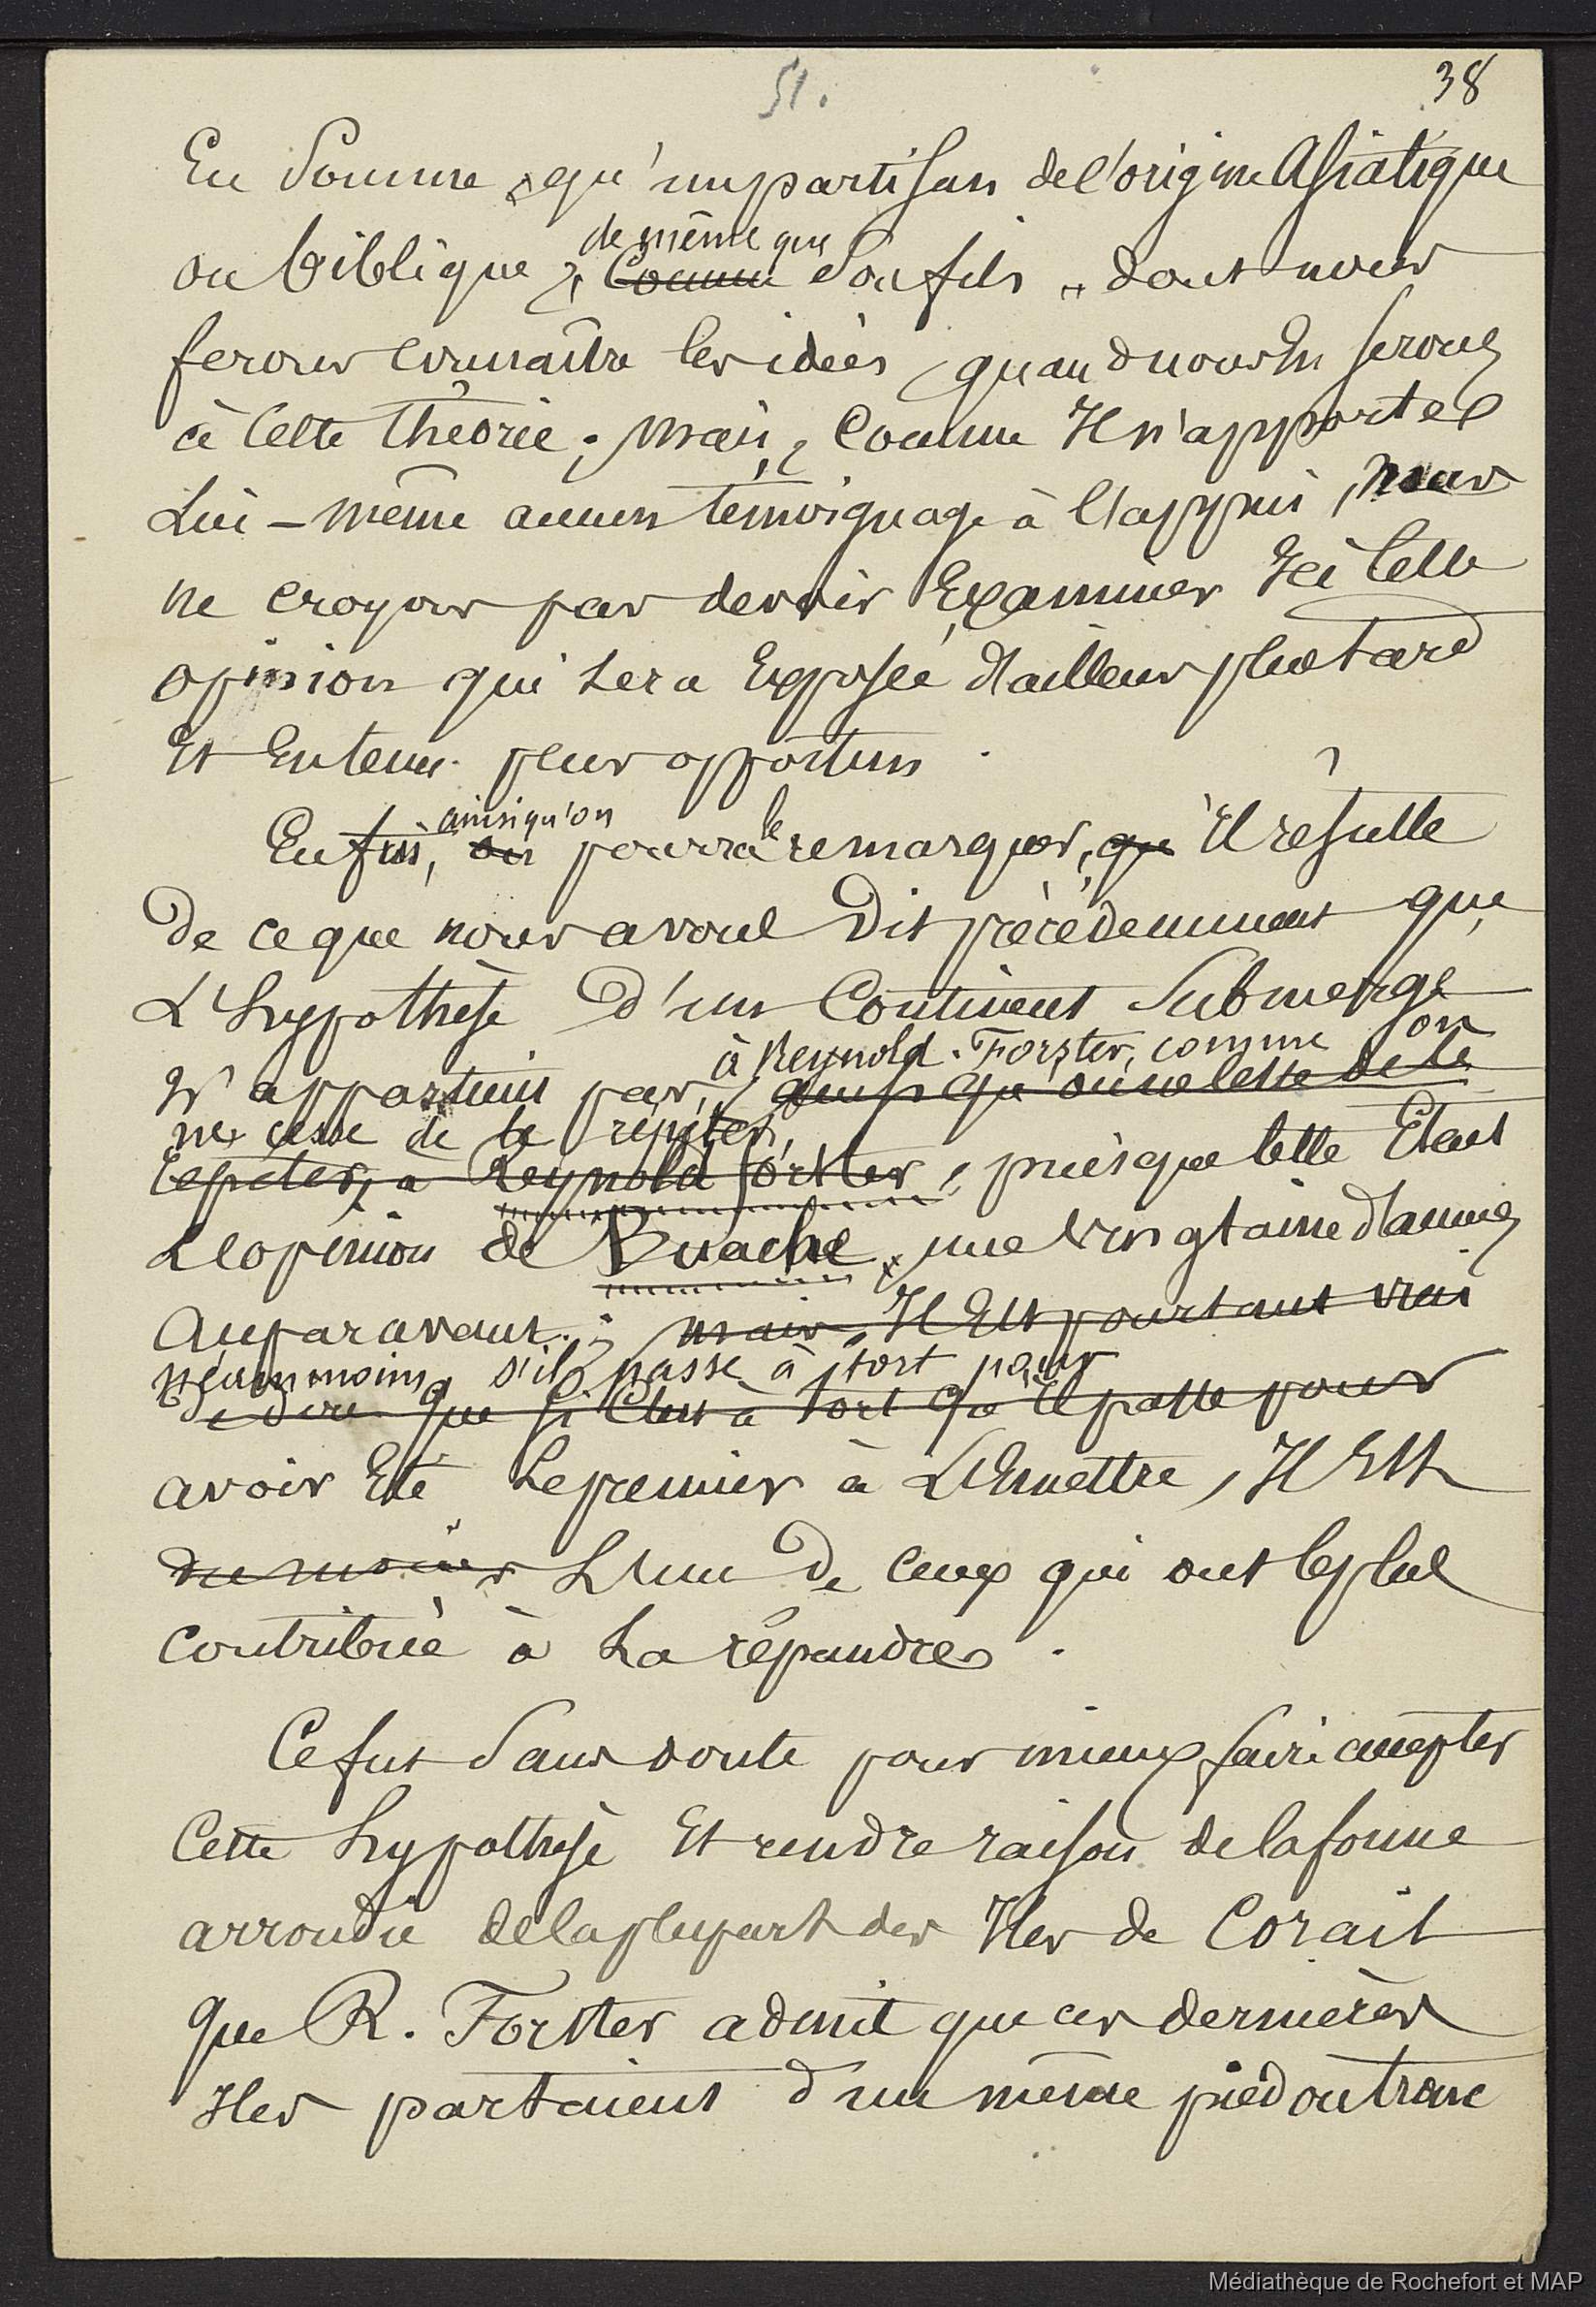 51.
38
En Somme, qu'un partisan de l'origine Asiatique
ou biblique, de même que
Comme Son fils, dont nous
ferons connaître les idées, quand nous en serons
à Cette théorie; mais, Comme Il n'apporte
Lui-même aucun témoignage à l'appui, nous
ne croyons pas devoir Examiner Ici Cette
opinion qui Sera Exposée d'ailleurs plus tard
Et En temps plus opportun.
ainsi qu'on le
Enfin, on pourra remarquer, que Il résulte
De ce que nous avons Dit précédemment que
L'hypothèse D'un Continent Submergé
à Reynold-Forster, comme on
N'appartient pas, ainsi qu'on ne Cesse de le
ne cesse de le répéter,
répéter, à Reynold forster, puisque Cette Etait
L'opinion de Buache, une Vingtaine d'années
Auparavant; mais, Il Est pourtant vrai
néanmoins, s'il passe à tort pour
de dire que si C'est à tort qu'Il passe pour
avoir Eté Le premier à L'Emettre, Il Est
du moins L'un De Ceux qui ont le plus
Contribué à La répandre.
Ce fut Sans doute pour mieux faire accepter
Cette hypothèse Et rendre raison de la forme
arrondie de la plupart des Iles de Corail
que R. Forster admit que ces dernières
Iles partaient d'un même pied ou tronc
Médiathèque de Rochefort et MAP